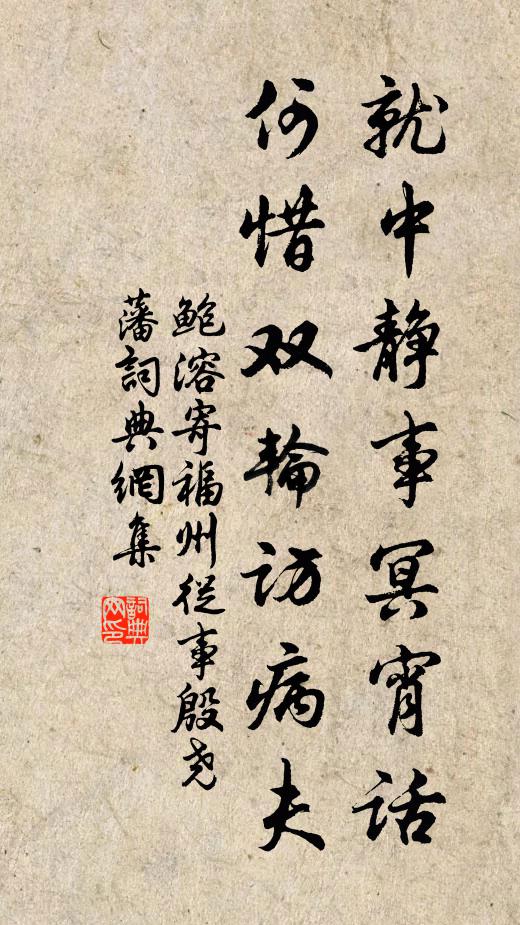 就中静事冥宵话
何惜双輪访病夫
鲍溶寄福州從事殷尧
藩詞典網集
詞典
网印